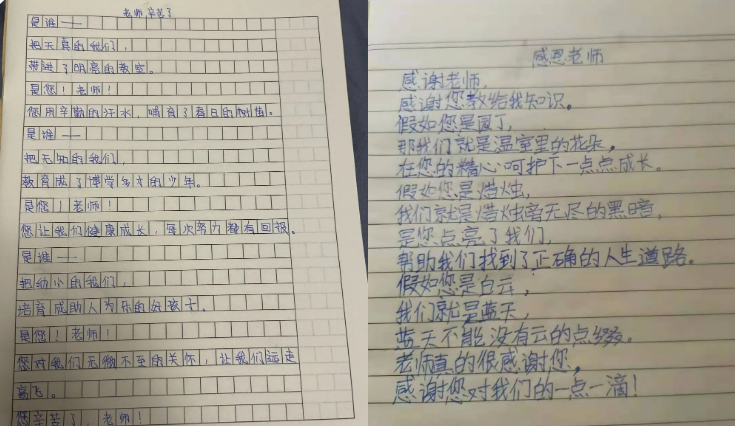 老师辛苦了
是谁——
把天真的我们，
带进了明亮的教室。
是您！老师！
您用辛勤的汗水，哺育了春日的树苗。
是谁——
把无知的我们，
教育成了博学多才的少年。
是您！老师！
您让我们健康成长，每次努力都有回报。
是谁——
把幼小的我们，
培育成助人为乐的好孩子。
是您！老师！
您对我们无微不至的关怀，让我们远走
高飞。
您辛苦了，老师！
感恩老师
感谢老师，
感谢您教给我知识。
假如您是园丁，
那我们就是温室里的花朵，
在您的精心呵护下一点点成长。
假如您是烛，
我们就是无尽的黑暗，
是您点亮了我们，
帮助我们找到了正确的人生道路。
假如您是白云，
我们就是蓝天，
蓝天不能没有云的点缀。
老师真的很感谢您，
感谢您对我们的一点一滴！